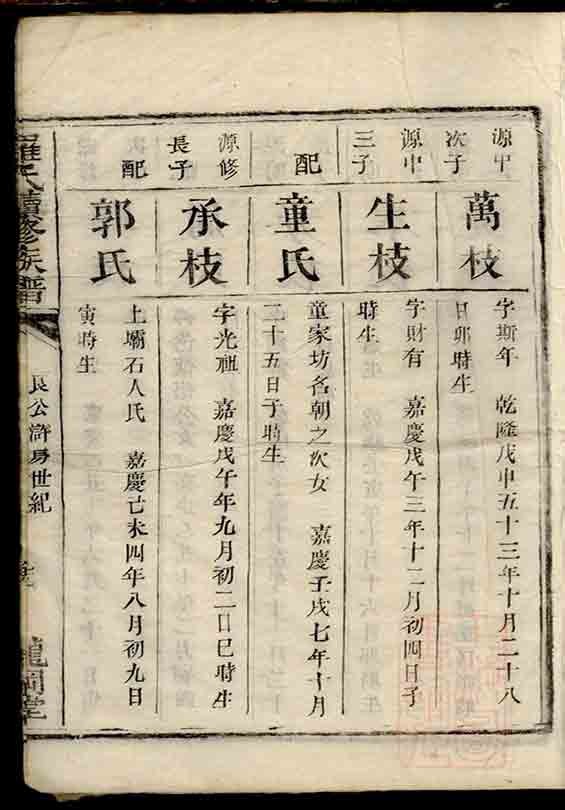 源中
次子
萬枝
字斯年　乾隆戊申五十三年十月二十八
日卯時生
源中
三子
生枝
字財有　嘉慶戊午三年十二月初四日子
時生
配
童氏
童家坊名朝之次女　嘉慶壬戌七年十月
二十五日子時生
源修
長子
承枝
字光祖　嘉慶戊午年九月初二日巳時生
配
郭氏
上壩石人氏　嘉慶己未四年八月初九日
寅時生
羅氏續修族譜
良公滸房世紀